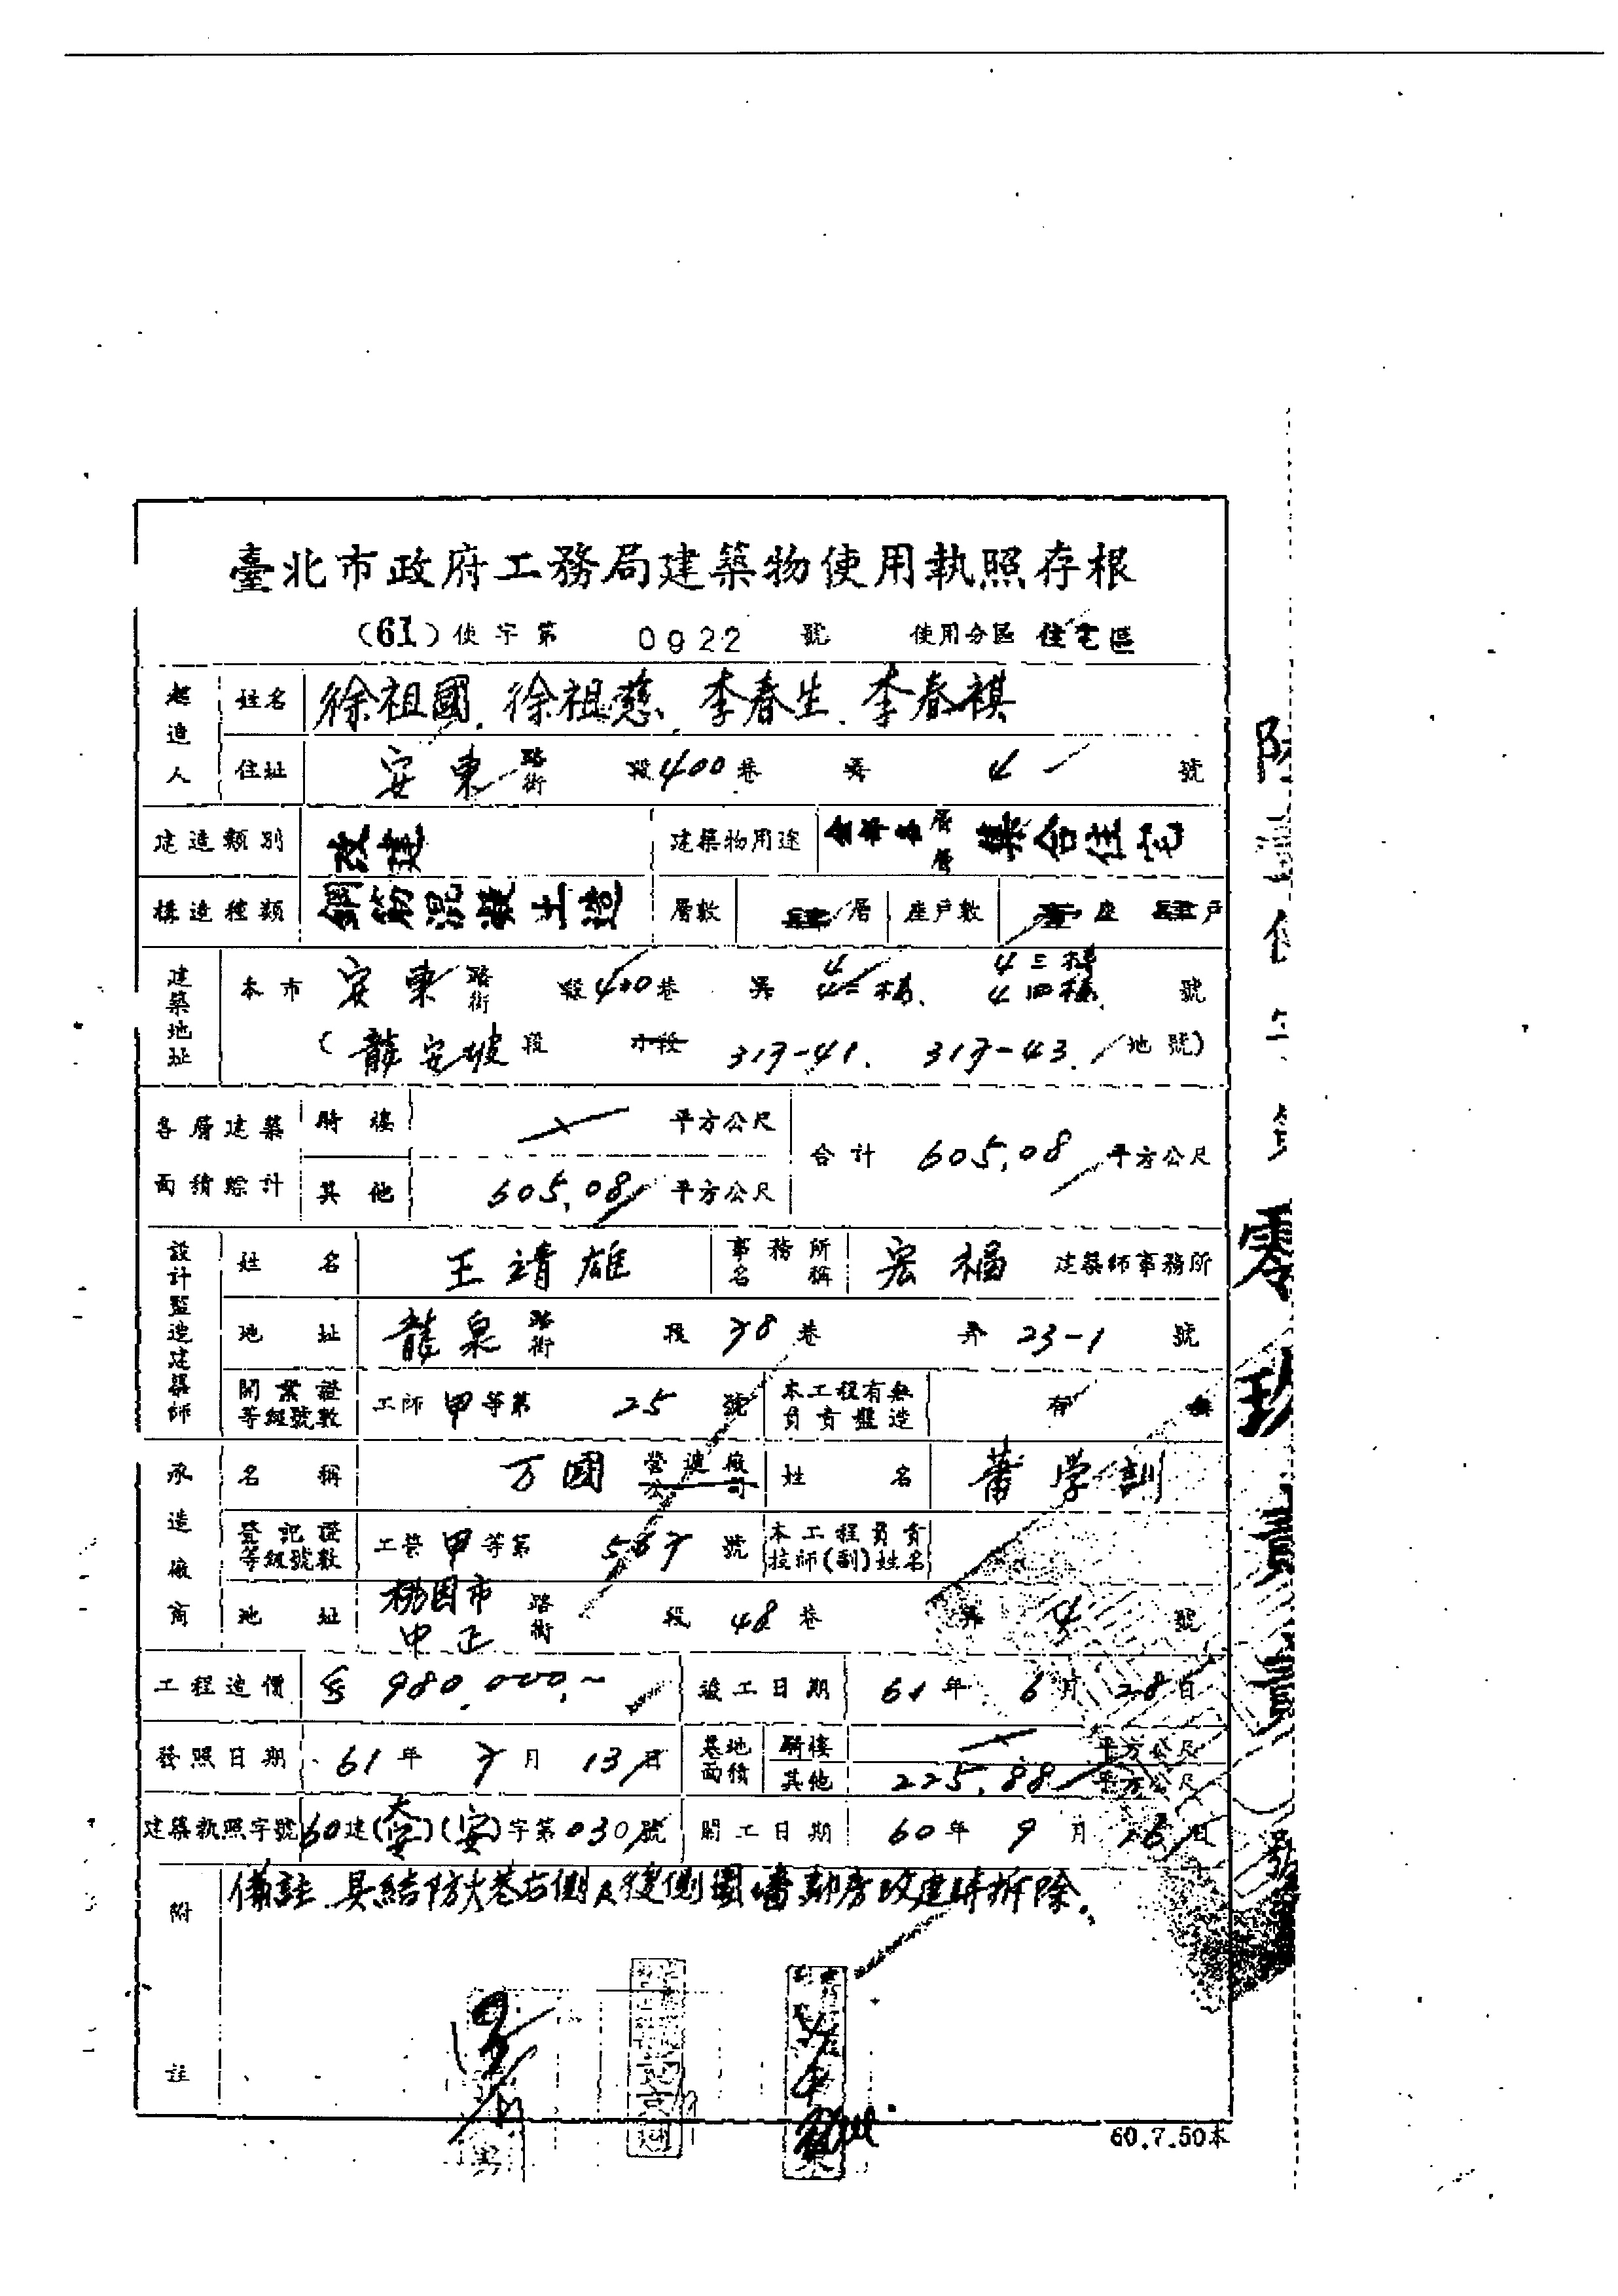 臺北市政府工務局建築物使用執照存根
(61)使字第 0922 號 使用分區 住宅區
起造人 姓名 徐祖國、徐祖慈、李春生、李春祺
住址 安東路街 段400巷 弄 4 號
建造類別 改建 建築物用途 層層 集合住宅
構造種類 鋼筋混凝土造 層數 肆層 座戶數 壹座 肆戶
建築地址 本市 安東路街 段400巷 弄 4 4二樓、4三樓 4四樓 號
(龍安坡段 小段 317-41、317-43、地號)
各層建築面積綜計 騎樓 平方公尺 合計 605.08 平方公尺
其他 605.08 平方公尺
設計監造建築師 姓名 王靖雄 事務所名稱 宏福 建築師事務所
地址 龍泉路街 段 78巷 弄 23-1 號
開業證等級號數 工師甲等第 25 號 本工程有無負責監造 有 無
承造廠商 名稱 万國 營造廠公司 姓名 蕭学訓
登記證等級號數 工營甲等第 567 號 本工程負責技師(副)姓名
地址 桃园市中正路街 段 48巷 弄 4 號
工程造價 980,000.~ 竣工日期 61年 6月 28日
發照日期 61年 7月 13日 基地面積 騎樓 平方公尺
其他 225.88 平方公尺
建築執照字號 60建()(安)字第030號 開工日期 60年 9月 16日
附註 備註 具結防火巷右側及後側圍墻 改建時拆除.
60.7.50本
零玖
號